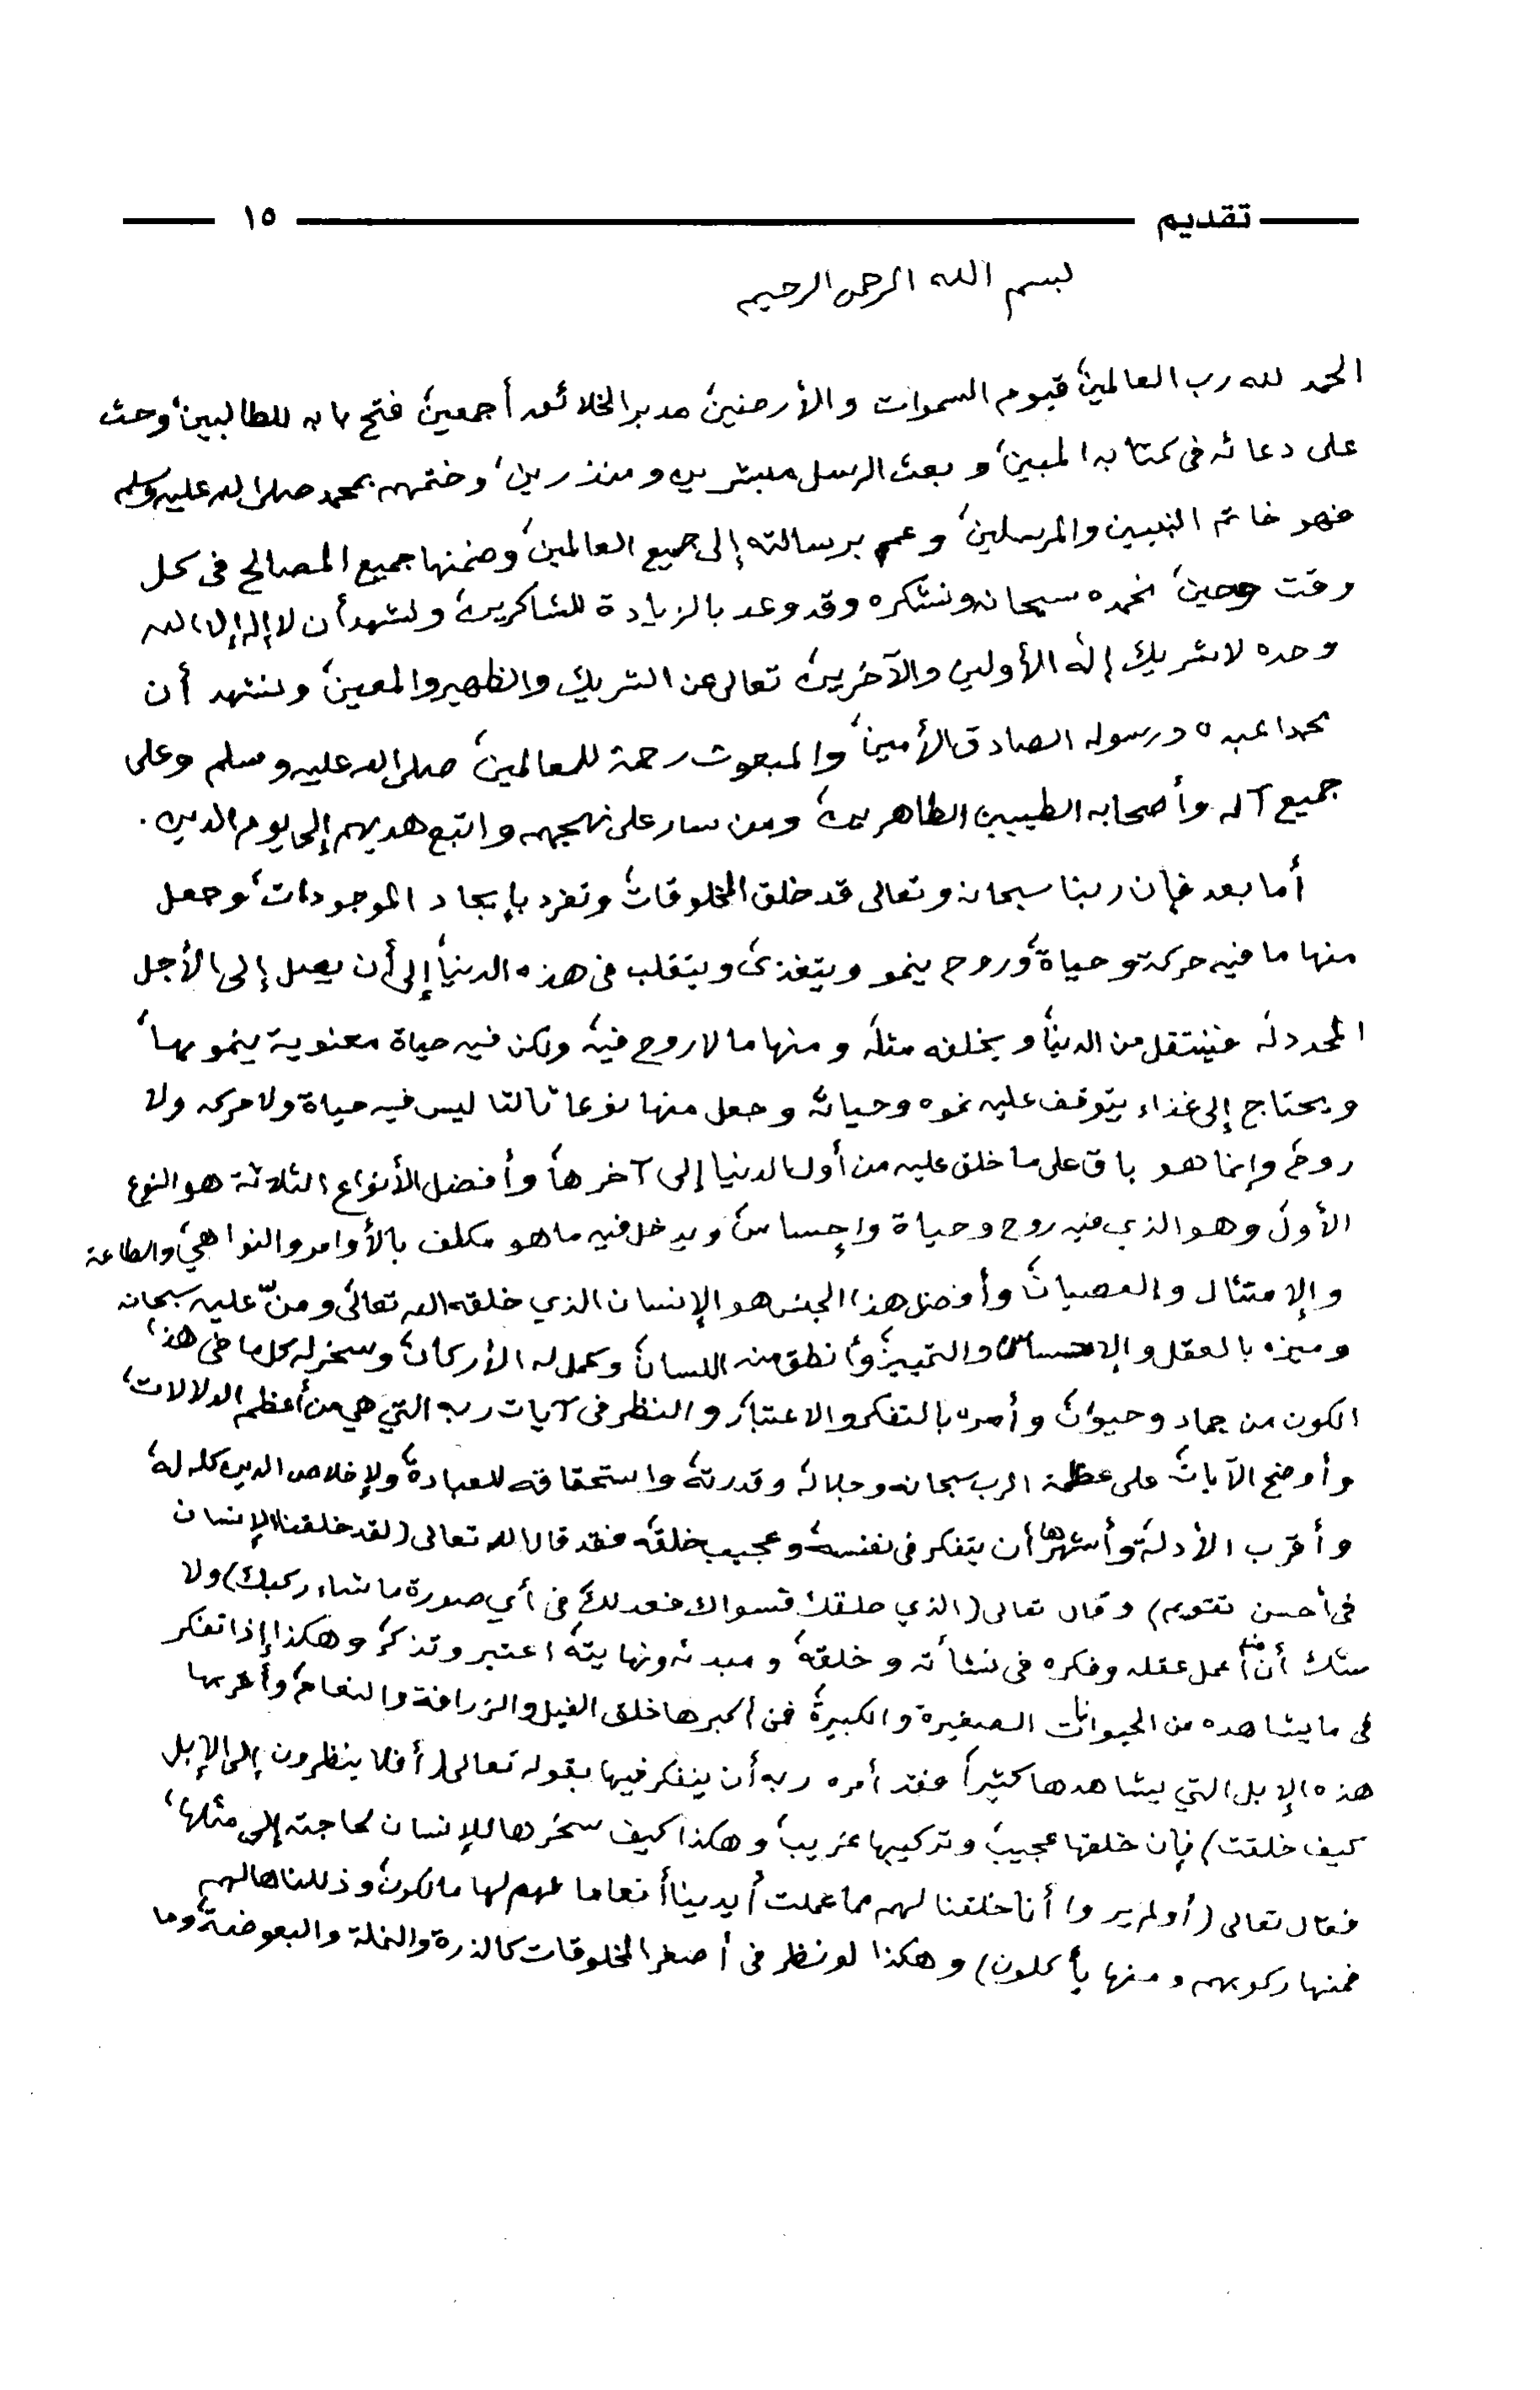 تقديم ١٥
بسم الله الرحمن الرحيم
الحمد لله رب العالمين، قيوم السموات والأرضين، مدبر الخلائق أجمعين، فتح بابه للطالبين، وحث
على دعائه في كتابه المبين، وبعث الرسل مبشرين ومنذرين، وختمهم بمحمد صلى الله عليه وسلم
فهو خاتم النبيين والمرسلين، وعمم برسالته إلى جميع العالمين، وضمنها جميع المصالح في كل
وقت وحين، نحمده سبحانه ونشكره وقد وعد بالزيادة للشاكرين، ونشهد أن لا إله إلا الله
وحده لا شريك إله الأولين والآخرين، تعالى عن الشريك والظهير والمعين، ونشهد أن
محمدا عبده ورسوله الصادق الأمين، والمبعوث رحمة للعالمين، صلى الله عليه وسلم وعلى
جميع آله وأصحابه الطيبين الطاهرين، ومن سار على نهجهم واتبع هديهم إلى يوم الدين.
أما بعد فإن ربنا سبحانه وتعالى قد خلق المخلوقات، وتفرد بإيجاد الموجودات، وجعل
منها ما فيه حركة وحياة، وروح ينمو ويتغذى، ويتقلب في هذه الدنيا، إلى أن يصل إلى الأجل
المحدد له، فينتقل من الدنيا، ويخلفه مثله، ومنها ما لا روح فيه، ولكن فيه حياة معنوية ينمو بها،
ويحتاج إلى غذاء يتوقف عليه نموه وحياته، وجعل منها نوعا ثالثا ليس فيه حياة ولا حركة ولا
روح، وإنما هو باق على ما خلق عليه من أول الدنيا إلى آخرها، وأفضل الأنواع الثلاثة هو النوع
الأول، وهو الذي فيه روح وحياة وإحساس، ويدخل فيه ما هو مكلف بالأوامر والنواهي، والطاعة
والإمتثال والعصيان، وأفضل هذا الجنس هو الإنسان الذي خلقه الله تعالى، ومنّ عليه سبحانه
وميزه بالعقل والإحساس والتمييز، وأنطق منه اللسان، وكمل له الأركان، وسخر له كل ما في هذا
الكون من جماد وحيوان، وأمره بالتفكر والاعتبار، والنظر في آيات ربه التي هي من أعظم الدلالات،
وأوضح الآيات، على عظمة الرب سبحانه وجلاله، وقدرته، واستحقاقه للعبادة، ولإخلاص الدين كله له،
وأقرب الأدلة، وأشهرها أن يتفكر في نفسه، وعجيب خلقه، فقد قال الله تعالى (لقد خلقنا الإنسان
في أحسن تقويم) وقال تعالى (الذي خلقك فسواك فعدلك، في أي صورة ما شاء ركبك) ولا
شك أن من أعمل عقله وفكره في نشأته وخلقه، ومبدئه ونهايته، اعتبر وتذكر، وهكذا إذا تفكر
في ما يشاهده من الحيوانات الصغيرة والكبيرة، فمن أكبرها خلق الفيل والزرافة والنعام، وأقربها
هذه الإبل التي يشاهدها كثيراً، فقد أمره ربه أن يتفكر فيها بقوله تعالى (أفلا ينظرون إلى الإبل
كيف خلقت) فإن خلقها عجيب، وتركيبها غريب، وهكذا كيف سخرها للإنسان لحاجته إلى مثلها،
فقال تعالى (أولم يروا أنا خلقنا لهم مما عملت أيدينا أنعاما فهم لها مالكون، وذللناها لهم
فمنها ركوبهم ومنها يأكلون) وهكذا لو نظر في أصغر المخلوقات كالذرة والنملة والبعوضة، وما